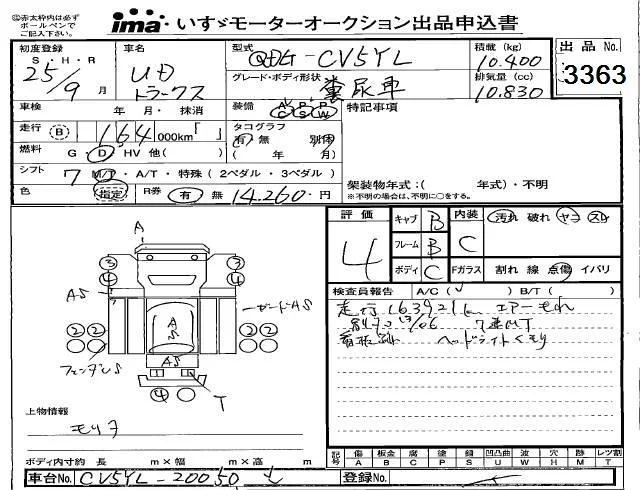 ◎赤太枠内は必ず
ボールペンで
ご記入下さい。
ima いすゞモーターオークション出品申込書
初度登録
S・H・R
25/9 月
車名
UD
トラックス
型式
QDG-CV5YL
グレード・ボディ形状
糞尿車
積載 (kg)
10.400
排気量 (cc)
10.830
出品 No.
3363
車検 年・月・抹消
装備 AC PS PW
特記事項
走行 B 164 000km「 」
タコグラフ
有 無 別体
( 年 月)
燃料 G・D・HV 他( )
シフト 7 M/T・A/T・特殊 (2ペダル・3ペダル)
架装物年式:( 年式)・不明
※不明の場合は、不明に○をする。
色 指定 R券 有 無 14.260- 円
評価
4
キャブ B
フレーム B
ボディ C
内装 C
汚れ 破れ ヤコ スレ
Fガラス 割れ 線 点傷 イバリ
検査員報告 A/C( レ ) B/T( )
走行163921k エアーもれ
7速MT
ヘッドライトくもり
A
③ ③
④ ④
AS
ガードAS
AS
② ② ② ②
フェンダS
AS
T
④
上物情報
モリタ
ボディ内寸約 長 m×幅 m×高 m
記号 傷 A 板金 B 腐 C 塗 P 錆 S 凹凸曲 U 波 W 穴 H 跡 M レツ割 T
車台No. CV5YL-20050
登録No.